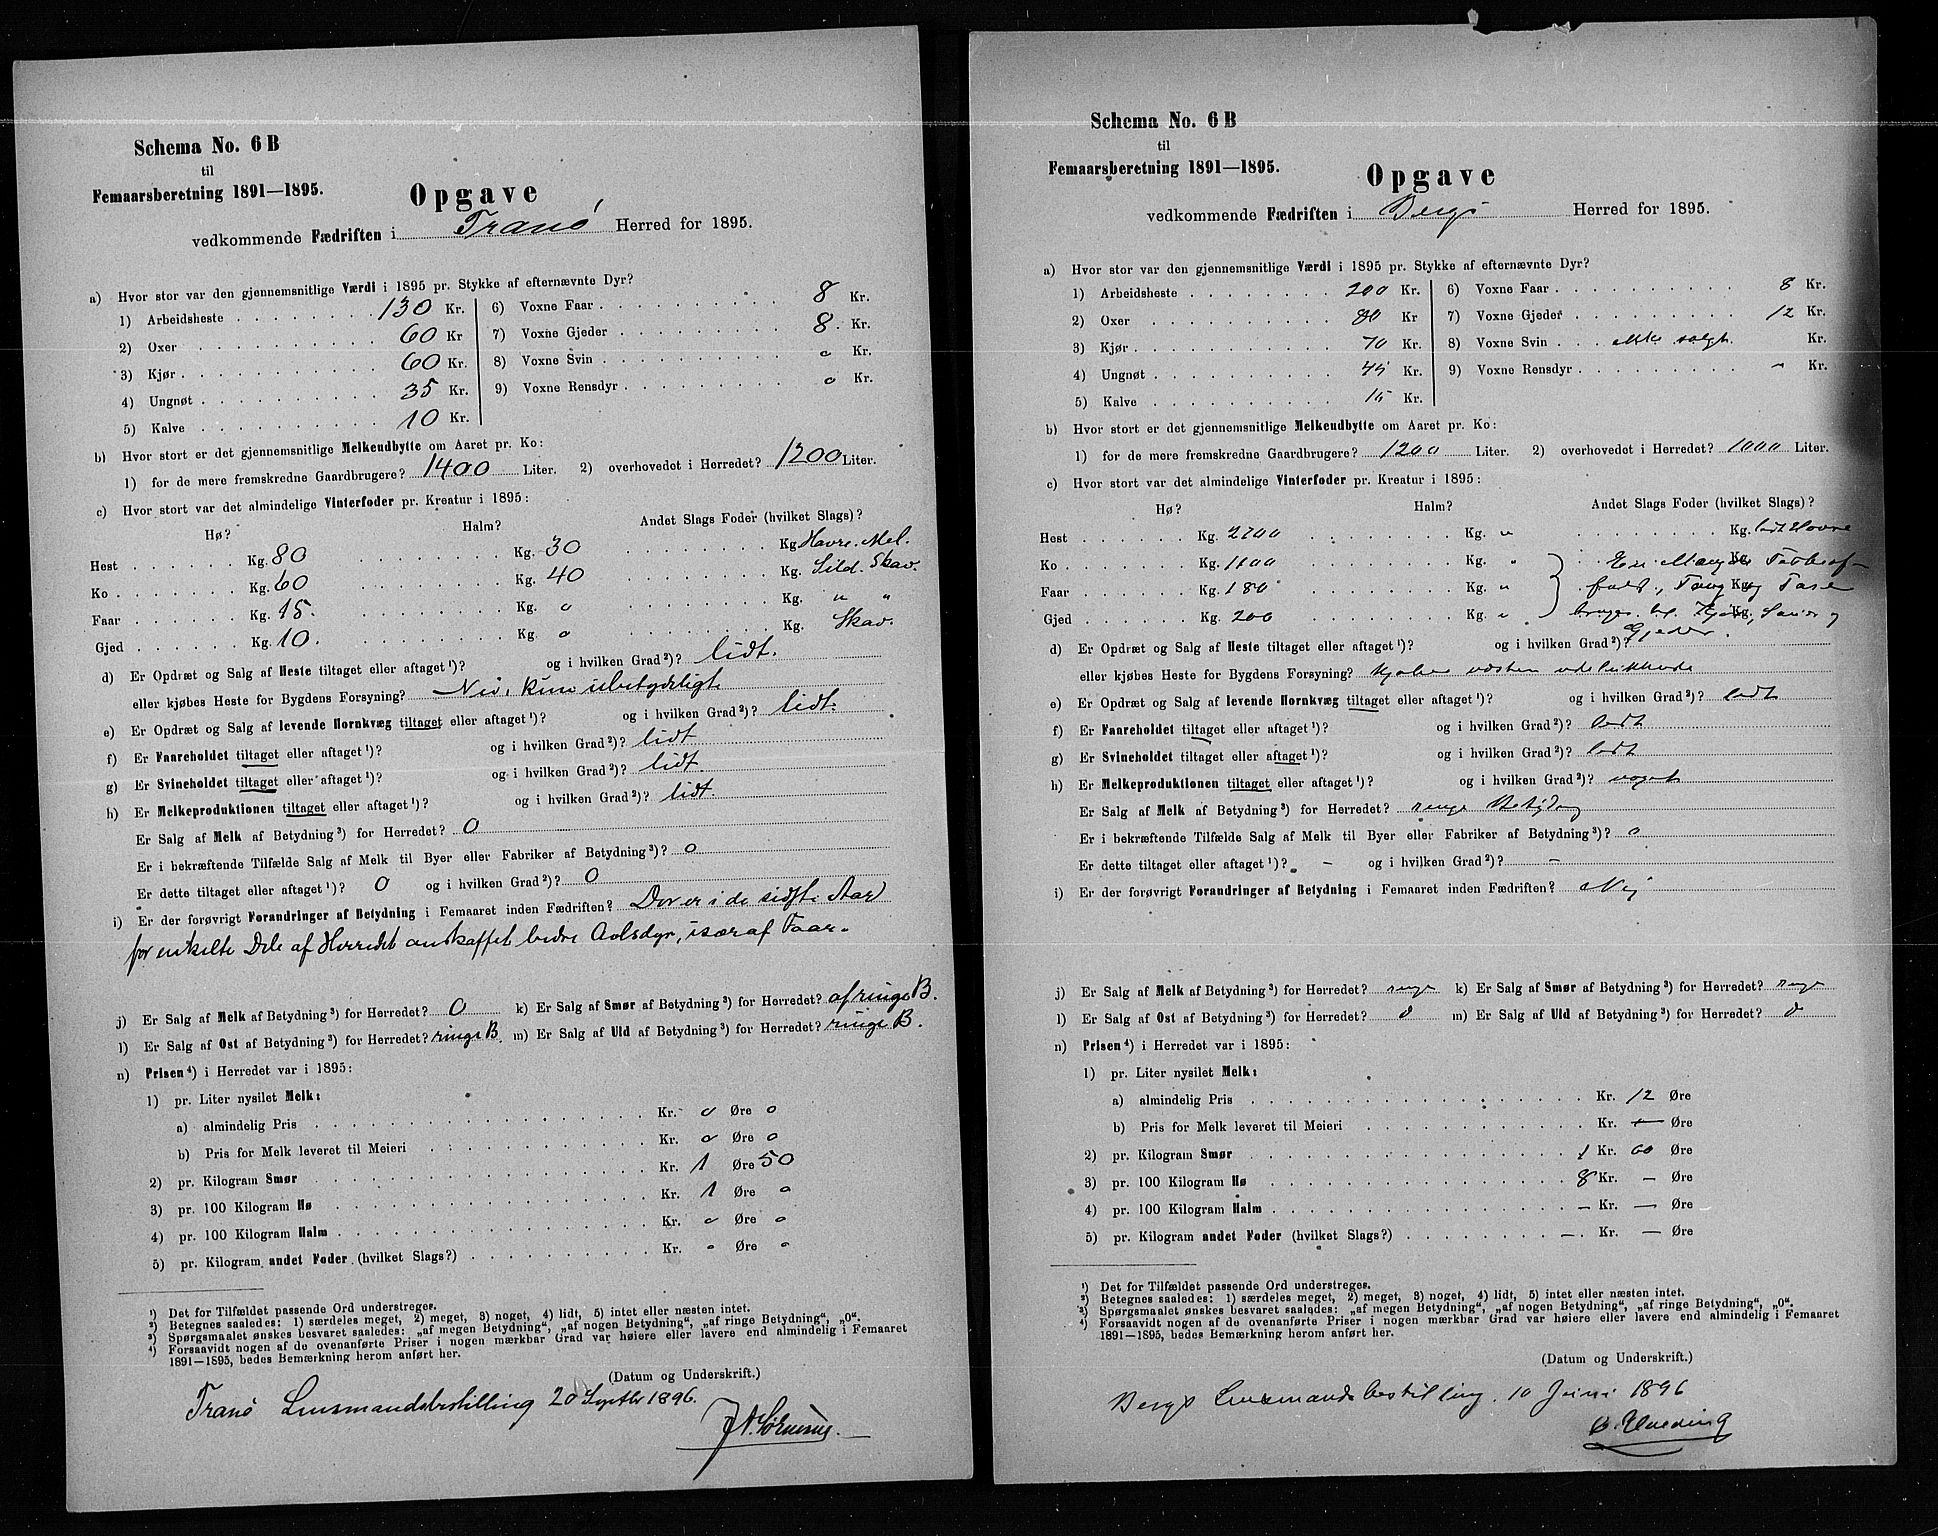 Schema No. 6 B
til
Femaarsberetning 1891—1895.
Opgave
vedkommende Fædriften i Tranö Herred for 1895.
a) Hvor stor var den gjennemsnitlige Værdi i 1895 pr. Stykke af efternævnte Dyr?
1) Arbeidsheste 130 Kr. 6) Voxne Faar 8 Kr.
2) Oxer 60 Kr 7) Voxne Gjeder 8. Kr.
3) Kjør 60 Kr. 8) Voxne Svin 0 Kr.
4) Ungnøt 35 Kr. 9) Voxne Rensdyr 0 Kr.
5) Kalve 10 Kr.
b) Hvor stort er det gjennemsnitlige Melkeudbytte om Aaret pr. Ko:
1) for de mere fremskredne Gaardbrugere? 1400 Liter. 2) overhovedet i Herredet? 1200 Liter.
c) Hvor stort var det almindelige Vinterfoder pr. Kreatur i 1895:
Hø? Halm? Andet Slags Foder (hvilket Slags)?
Hest Kg. 80 Kg. 30 Kg. Havre. Mel.
Ko Kg. 60 Kg. 40 Kg. Sild. Skav.
Faar Kg. 15. Kg. 0 Kg. " "
Gjed Kg. 10. Kg. 0 Kg. Skav.
d) Er Opdræt og Salg af Heste tiltaget eller aftaget ¹)? og i hvilken Grad ²)? lidt.
eller kjøbes Heste for Bygdens Forsyning? Nei, kun ubetydeligt
e) Er Opdræt og Salg af levende Hornkvæg tiltaget eller aftaget ¹)? og i hvilken Grad ²)? lidt.
f) Er Faareholdet tiltaget eller aftaget ¹)? og i hvilken Grad ²)? lidt
g) Er Svineholdet tiltaget eller aftaget ¹)? og i hvilken Grad ²)? lidt
h) Er Melkeproduktionen tiltaget eller aftaget ¹)? og i hvilken Grad ²)? lidt.
Er Salg af Melk af Betydning ³) for Herredet? 0
Er i bekræftende Tilfælde Salg af Melk til Byer eller Fabriker af Betydning ³)? 0
Er dette tiltaget eller aftaget ¹)? 0 og i hvilken Grad ²)? 0
i) Er der forøvrigt Forandringer af Betydning i Femaaret inden Fædriften? Der er i de sidste Aar
for enkelte Dele af Herredet anskaffet bedre Avlsdyr, især af Faar.
j) Er Salg af Melk af Betydning ³) for Herredet? 0 k) Er Salg af Smør af Betydning ³) for Herredet? af ringe B.
l) Er Salg af Ost af Betydning ³) for Herredet? ringe B. m) Er Salg af Uld af Betydning ³) for Herredet? ringe B.
n) Prisen ⁴) i Herredet var i 1895:
1) pr. Liter nysilet Melk:
a) almindelig Pris Kr. 0 Øre 0
b) Pris for Melk leveret til Meieri Kr. 0 Øre 0
2) pr. Kilogram Smør Kr. 1 Øre 50
3) pr. 100 Kilogram Hø Kr. 1 Øre 0
4) pr. 100 Kilogram Halm Kr. 0 Øre 0
5) pr. Kilogram andet Foder (hvilket Slags?) Kr. 0 Øre 0
¹) Det for Tilfældet passende Ord understreges.
²) Betegnes saaledes: 1) særdeles meget, 2) meget, 3) noget, 4) lidt, 5) intet eller næsten intet.
³) Spørgsmaalet ønskes besvaret saaledes: „af megen Betydning“, „af nogen Betydning“, „af ringe Betydning“, „0“.
⁴) Forsaavidt nogen af de ovenanførte Priser i nogen mærkbar Grad var høiere eller lavere end almindelig i Femaaret
1891—1895, bedes Bemærkning herom anført her.
(Datum og Underskrift.)
Tranö Lensmandsbestilling 20 Septbr 1896.
Schema No. 6 B
til
Femaarsberetning 1891—1895.
Opgave
vedkommende Fædriften i Bergs Herred for 1895.
a) Hvor stor var den gjennemsnitlige Værdi i 1895 pr. Stykke af efternævnte Dyr?
1) Arbeidsheste 200 Kr. 6) Voxne Faar 8 Kr.
2) Oxer 80 Kr 7) Voxne Gjeder 12 Kr.
3) Kjør 70 Kr. 8) Voxne Svin ikke solgt. Kr.
4) Ungnøt 45 Kr. 9) Voxne Rensdyr " Kr.
5) Kalve 15 Kr.
b) Hvor stort er det gjennemsnitlige Melkeudbytte om Aaret pr. Ko:
1) for de mere fremskredne Gaardbrugere? 1200 Liter. 2) overhovedet i Herredet? 1000 Liter.
c) Hvor stort var det almindelige Vinterfoder pr. Kreatur i 1895:
Hø? Halm? Andet Slags Foder (hvilket Slags)?
Hest Kg. 2700 Kg. " Kg. lidt Havre
Ko Kg. Kg. " Kg. En Mængde Fiskeaf-
Faar Kg. 180 Kg. " Kg. fald, Tang og Tare
Gjed Kg. 200 Kg. " Kg. bruges til Kjør, Sauer og
Gjeder.
d) Er Opdræt og Salg af Heste tiltaget eller aftaget ¹)? og i hvilken Grad ²)?
eller kjøbes Heste for Bygdens Forsyning? Kjøbes næsten udelukkende
e) Er Opdræt og Salg af levende Hornkvæg tiltaget eller aftaget ¹)? og i hvilken Grad ²)? lidt
f) Er Faareholdet tiltaget eller aftaget ¹)? og i hvilken Grad ²)? lidt
g) Er Svineholdet tiltaget eller aftaget ¹)? og i hvilken Grad ²)? lidt
h) Er Melkeproduktionen tiltaget eller aftaget ¹)? og i hvilken Grad ²)? noget
Er Salg af Melk af Betydning ³) for Herredet? ringe Betydning
Er i bekræftende Tilfælde Salg af Melk til Byer eller Fabriker af Betydning ³)? 0
Er dette tiltaget eller aftaget ¹)? — og i hvilken Grad ²)? —
i) Er der forøvrigt Forandringer af Betydning i Femaaret inden Fædriften? Nej
j) Er Salg af Melk af Betydning ³) for Herredet? ringe k) Er Salg af Smør af Betydning ³) for Herredet? ringe
l) Er Salg af Ost af Betydning ³) for Herredet? 0 m) Er Salg af Uld af Betydning ³) for Herredet? 0
n) Prisen ⁴) i Herredet var i 1895:
1) pr. Liter nysilet Melk:
a) almindelig Pris Kr. 12 Øre
b) Pris for Melk leveret til Meieri Kr. — Øre
2) pr. Kilogram Smør 1 Kr. 60 Øre
3) pr. 100 Kilogram Hø 8 Kr. — Øre
4) pr. 100 Kilogram Halm — Kr. — Øre
5) pr. Kilogram andet Foder (hvilket Slags?) — Kr. — Øre
¹) Det for Tilfældet passende Ord understreges.
²) Betegnes saaledes: 1) særdeles meget, 2) meget, 3) noget, 4) lidt, 5) intet eller næsten intet.
³) Spørgsmaalet ønskes besvaret saaledes: „af megen Betydning“, „af nogen Betydning“, „af ringe Betydning“, „0“.
⁴) Forsaavidt nogen af de ovenanførte Priser i nogen mærkbar Grad var høiere eller lavere end almindelig i Femaaret
1891—1895, bedes Bemærkning herom anført her.
(Datum og Underskrift.)
Bergs Lensmandsbestilling. 10 Juni 1896